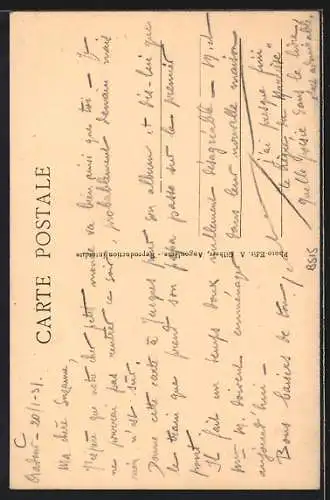 CARTE POSTALE
C
20/1-31.
Ma chère Suzanne,
J'espère que notre cher petit monde va bien ainsi que toi - Je
ne pourrai pas rentrer ce soir, probablement demain mais
rien n'est sûr
Donne cette carte à Jacques pour son album et dis-lui que
le train que prend son papa passe sur le premier
pont
Il fait un temps doux nullement désagréable - M. et
Mme M. doivent emménager dans leur nouvelle maison
aujourd'hui -
Bons baisers de ton
j'ai presque fini
le
quelle poésie dans le livre
Photo Edit. A. Gilbert, Angoulême. - Reproduction interdite
8515